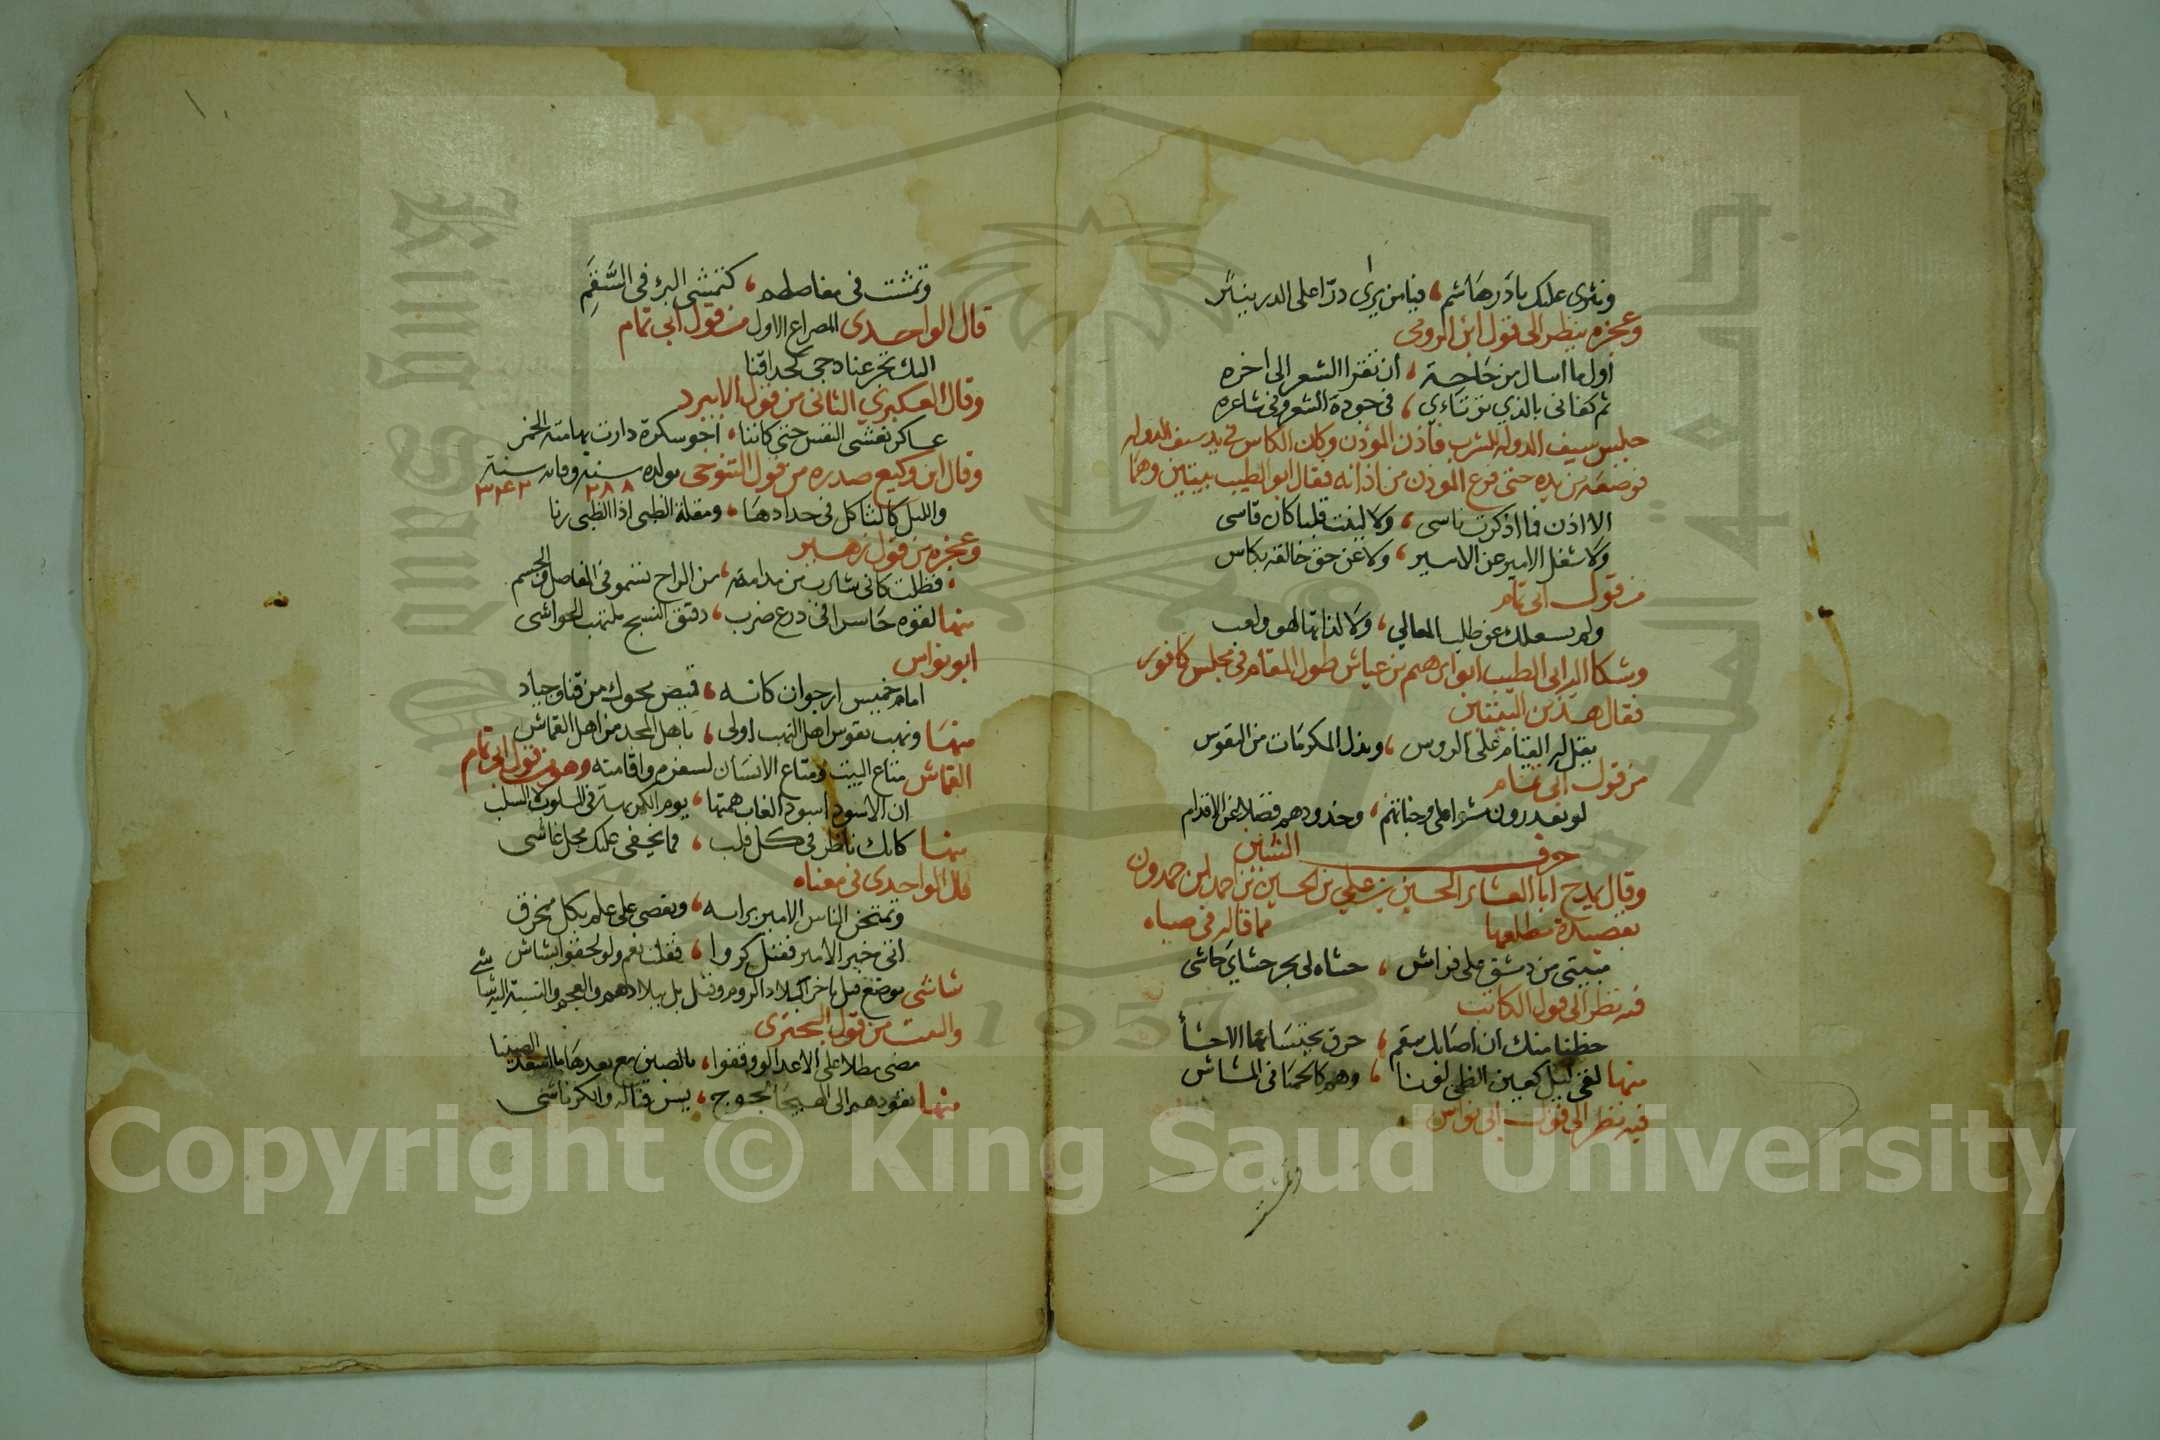 ونثرى عليك يا در هاشم، فيا من يرى درا على الدر ينثر
وعجزه ينظر الى قول ابن الرومي
اول ما اسال من حاجة، ان تقرا الشعر الى اخره
ثم كفانى بالذي ترتاى، فى جودة الشعر وفى شاعره
جلس سيف الدوله للشرب فاذن المؤذن وكان الكاس فى يد سيف الدوله
فوضعه من يده حتى فرغ المؤذن من اذانه فقال ابو الطيب بيتين وهما
الا اذن فما اذكرت ناسى، ولا لينت قلبا كان قاسى
ولا شغل الامير عن الاسير، ولا عن حق خالقه بكاس
من قول ابى تمام
ولم يشغلك عن طلب المعالي، ولا لذاتها لهو ولعب
وشكا الى ابى الطيب ابو ابرهيم بن عياش طول المقام فى مجلس كافور
فقال هذين البيتين
يقل له القيام على الروس، وبذل المكرمات من النفوس
من قول ابى تمام
لو يقدرون مشوا على وجناتهم، وخدودهم فضلا عن الاقدام
حرف الشين
وقال يمدح ابا العشاير الحسين بن علي بن الحسين بن احمد بن حمدون
بقصيدة مطلعها مما قاله فى صباه
مبيتى من دمشق على فراش، حشاه لى بحر حشاي حاشى
فيه نظر الى قول الكاتب
حظنا منك ان اصابك سقم، حرق بحتسائها الاحشا
منها لقى ليل كعين الظبى لونا، وهم كالحميا فى المشاش
فيه نظر الى قول ابى نواس
وتمشت
وتمشت فى مفاصلهم، كتمشى البرء فى السقم
قال الواحدى المصراع الاول من قول ابى تمام
اليك تجرعنا دجى كحداقنا
وقال العكبري الثانى من قول الابيرد
عساكر تغشى النفس حتى كاننا، اخو سكرة دارت بهامته الخمر
وقال ابن وكيع صدره من قول التنوخى مولده سنة ٢٨٨ وفاته سنة ٣٤٣
والليل كالثاكل فى حدادها، ومقلة الظبى اذا الظبى رنا
وعجزه من قول زهير
فظلت كانى شارب من مدامة، من الراح تسمو فى المفاصل والجسم
منها لقوه حاسرا فى درع ضرب، دقيق النسج ملتهب الحواشى
ابو نواس
امام خميس ارجوان كانه، قميص محوك من قنا وجياد
منها ونهب نفوس اهل النهب اولى، باهل المجد من اهل القماش
القماش متاع البيت ومتاع الانسان لسفره واقامته وهو من قول ابى تمام
ان الاسود اسود الغاب همتها، يوم الكريهة فى المسلوب لا السلب
منها كانك ناظر فى كل قلب، فما يخفى عليك محل غاشى
قال الواحدى فى معناه
وتمتحن الناس الامير برايه، ويغضى على علم بكل مخرق
اتى خبر الامير فقيل كروا، فقلت نعم ولو لحقوا بشاش
شاشى موضع قيل باخر بلاد الروم وقيل بل ببلاد العجم والنسبة اليه شاشى
والبيت من قول البحترى
مضى مطلا على الاعدا لو وقفوا، بالصين مع بعدها ما استبعد الصينا
منها نقودهم الى الهيجا لجوج، يسن قتاله والكر ناشى